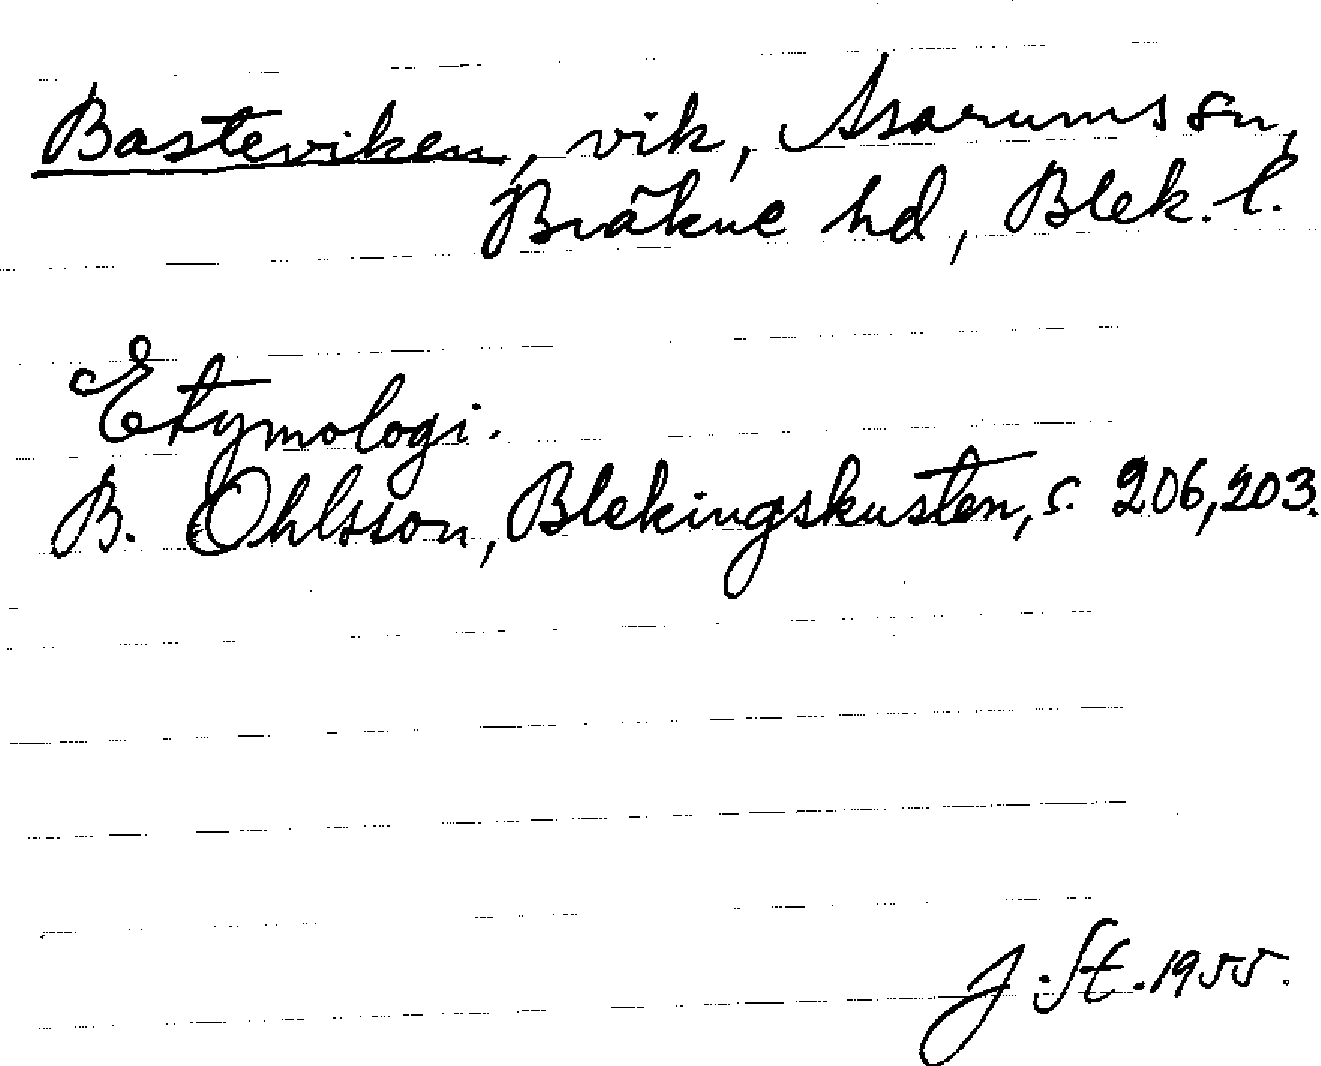 Basteviken, vik, Asarums sn,
Bräkne hd, Blek. l.
Etymologi.
B. Ohlsson, Blekingskusten, s. 206, 203.
J. St. 1955.